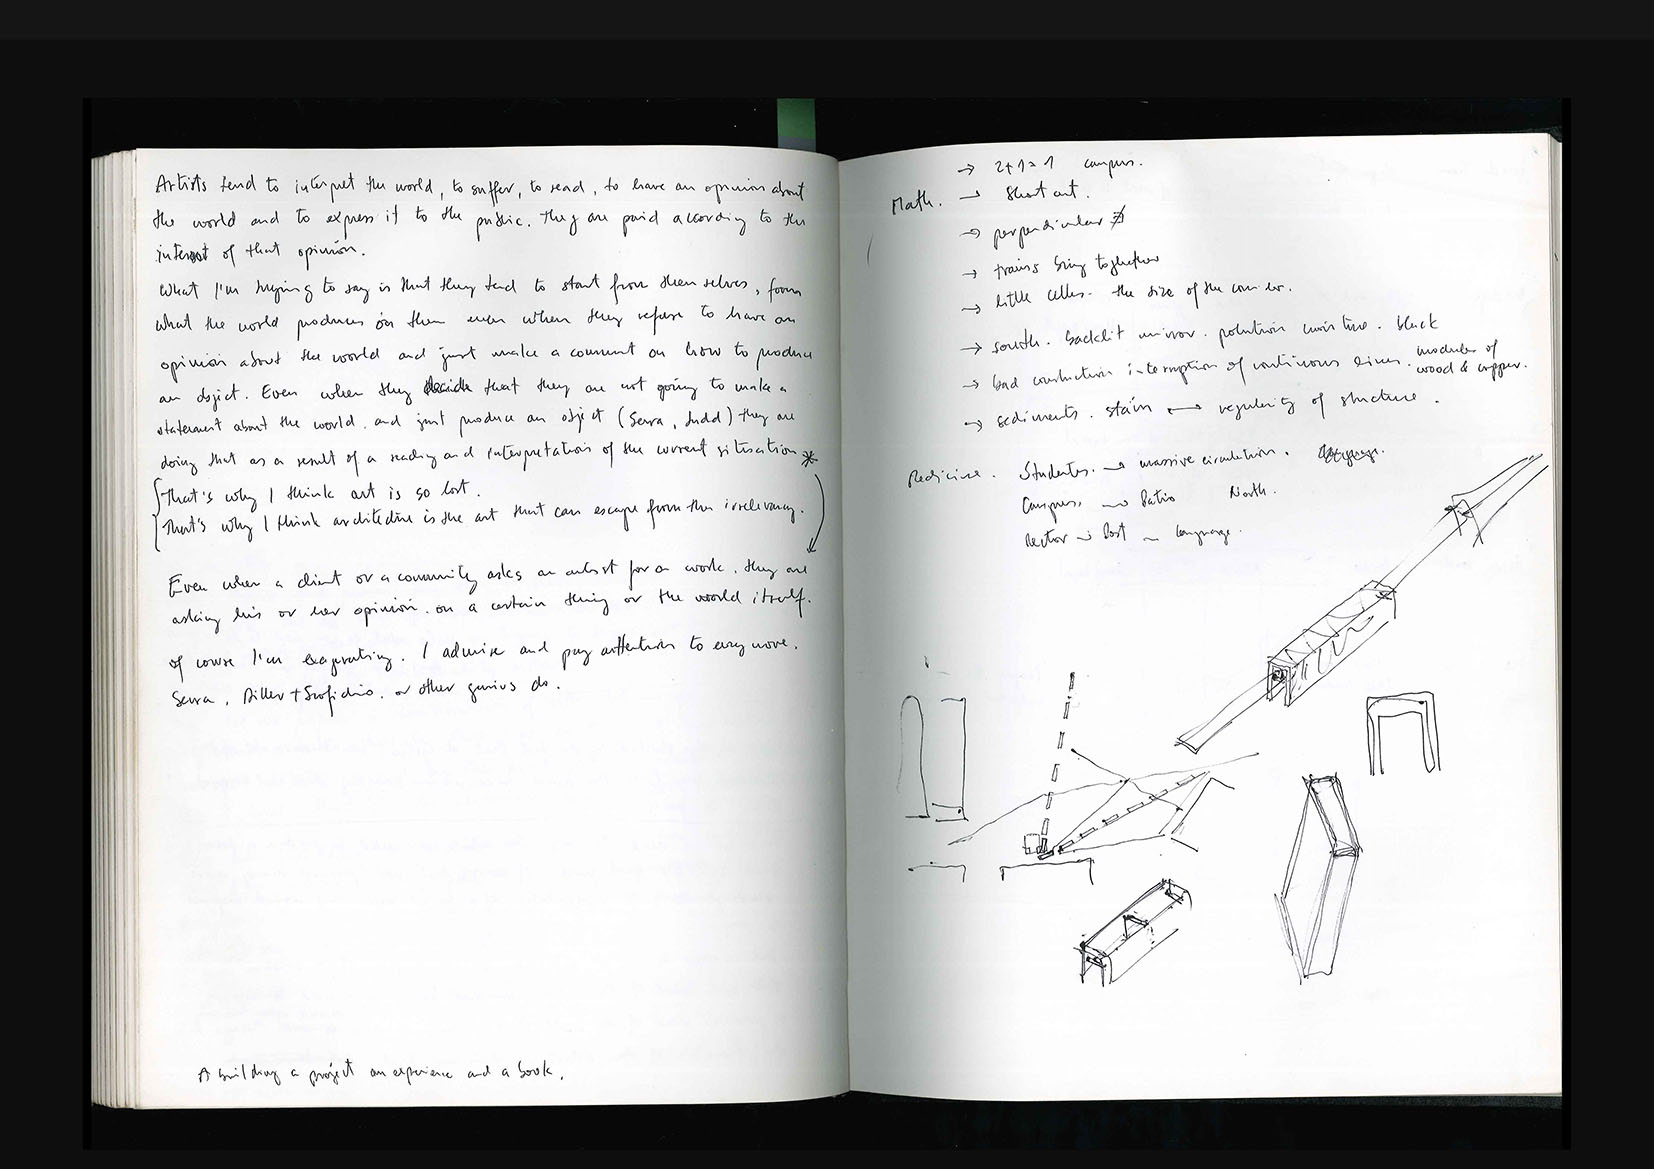 Artists tend to interpret the world, to suffer, to read, to have an opinion about
the world and to express it to the public. They are paid according to the
interest of that opinion.
What I'm trying to say is that they tend to start from themselves, from
what the world produces on them even when they refuse to have an
opinion about the world and just make a comment on how to produce
an object. Even when they decide that they are not going to make a
statement about the world. and just produce an object (Serra, Judd) they are
doing that as a result of a reading and interpretation of the current situation *
That's why I think art is so lost.
That's why I think architecture is the art that can escape from this irrelevancy.
Even when a client or a community asks an artist for a work. they are
asking his or her opinion. on a certain thing or the world itself.
of course I'm exagerating. I admire and pay attention to every move.
Serra, Diller + Scofidio. or other genius do.
A building a project an experience and a book.
→ 2+1=1 campus.
Math. → Short cut.
→ perpendicular
→ trains bring together
→ little cells. the size of the corridor.
→ south. backlit mirror. black
→ bad construction interruption of continuous lines. modules of
wood & copper.
→ sediments. stain ⟷ regularity of structure.
Medicine. Students. → massive circulation.
Campus → Patio North.
Rector → Port ~ language.